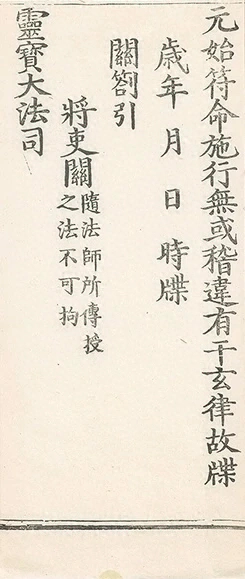 元始符命施行無或稽違有干玄律故牒
歲年月日時牒
關劄引
將吏關隨法師所傳授
之法不可拘
靈寶大法司